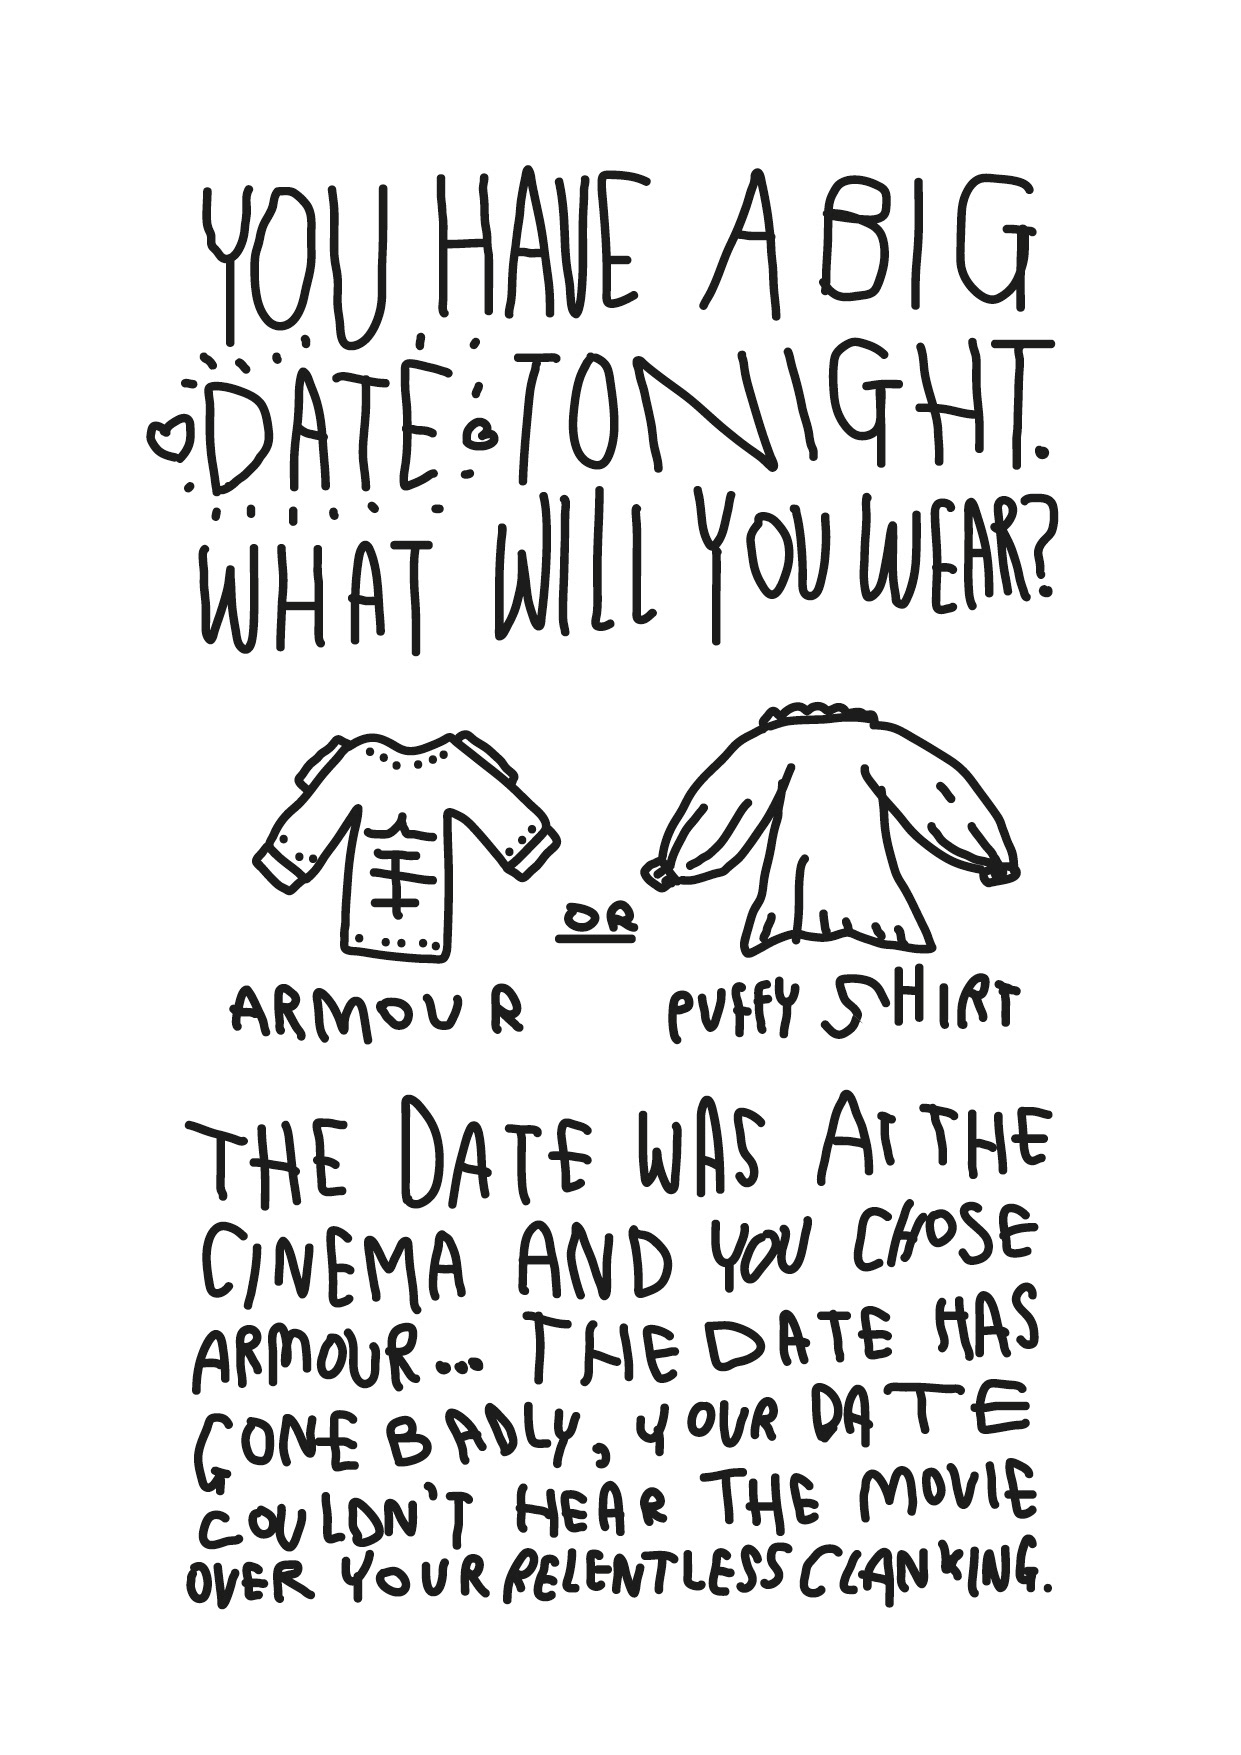 YOU HAVE A BIG
DATE TONIGHT.
WHAT WILL YOU WEAR?
OR
ARMOUR PUFFY SHIRT
THE DATE WAS AT THE
CINEMA AND YOU CHOSE
ARMOUR... THE DATE HAS
GONE BADLY, YOUR DATE
COULDN'T HEAR THE MOVIE
OVER YOUR RELENTLESS CLANKING.